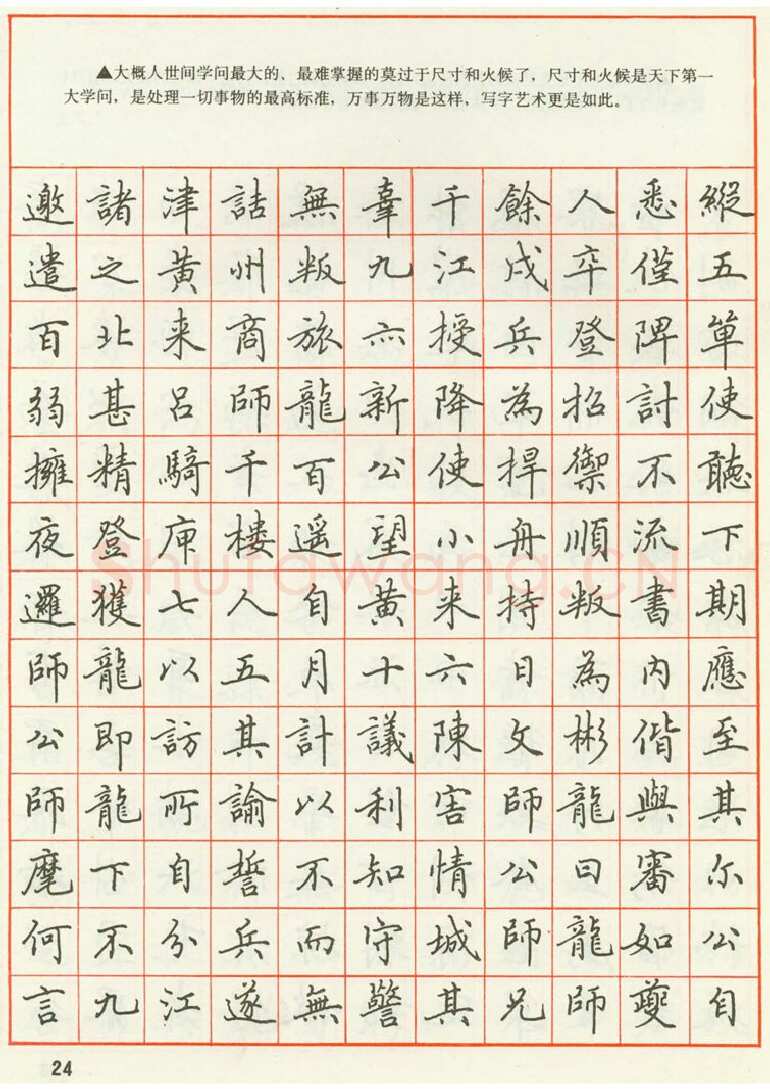 ▲大概人世间学问最大的、最难掌握的莫过于尺寸和火候了，尺寸和火候是天下第一
大学问，是处理一切事物的最高标准，万事万物是这样，写字艺术更是如此。
邀諸津詰無辜千餘人悉縱
遣之黃州叛九江戍卒僅五
百北来商旅亦授兵登陴單
弱甚呂師龍新降為招討使
擁精騎千百公使捍禦不聽
夜登庾樓遥望小舟順流下
邏獲七人自黃来持叛書期
師龍以五月十六日為内應
公即訪其計議陳文彬偕至
師龍所諭以利害師龍與其
麾下自誓不知情公曰審尓
何不分兵而守城師龍如公
言九江遂無警其兄師夔自
24
Shufawang.CN